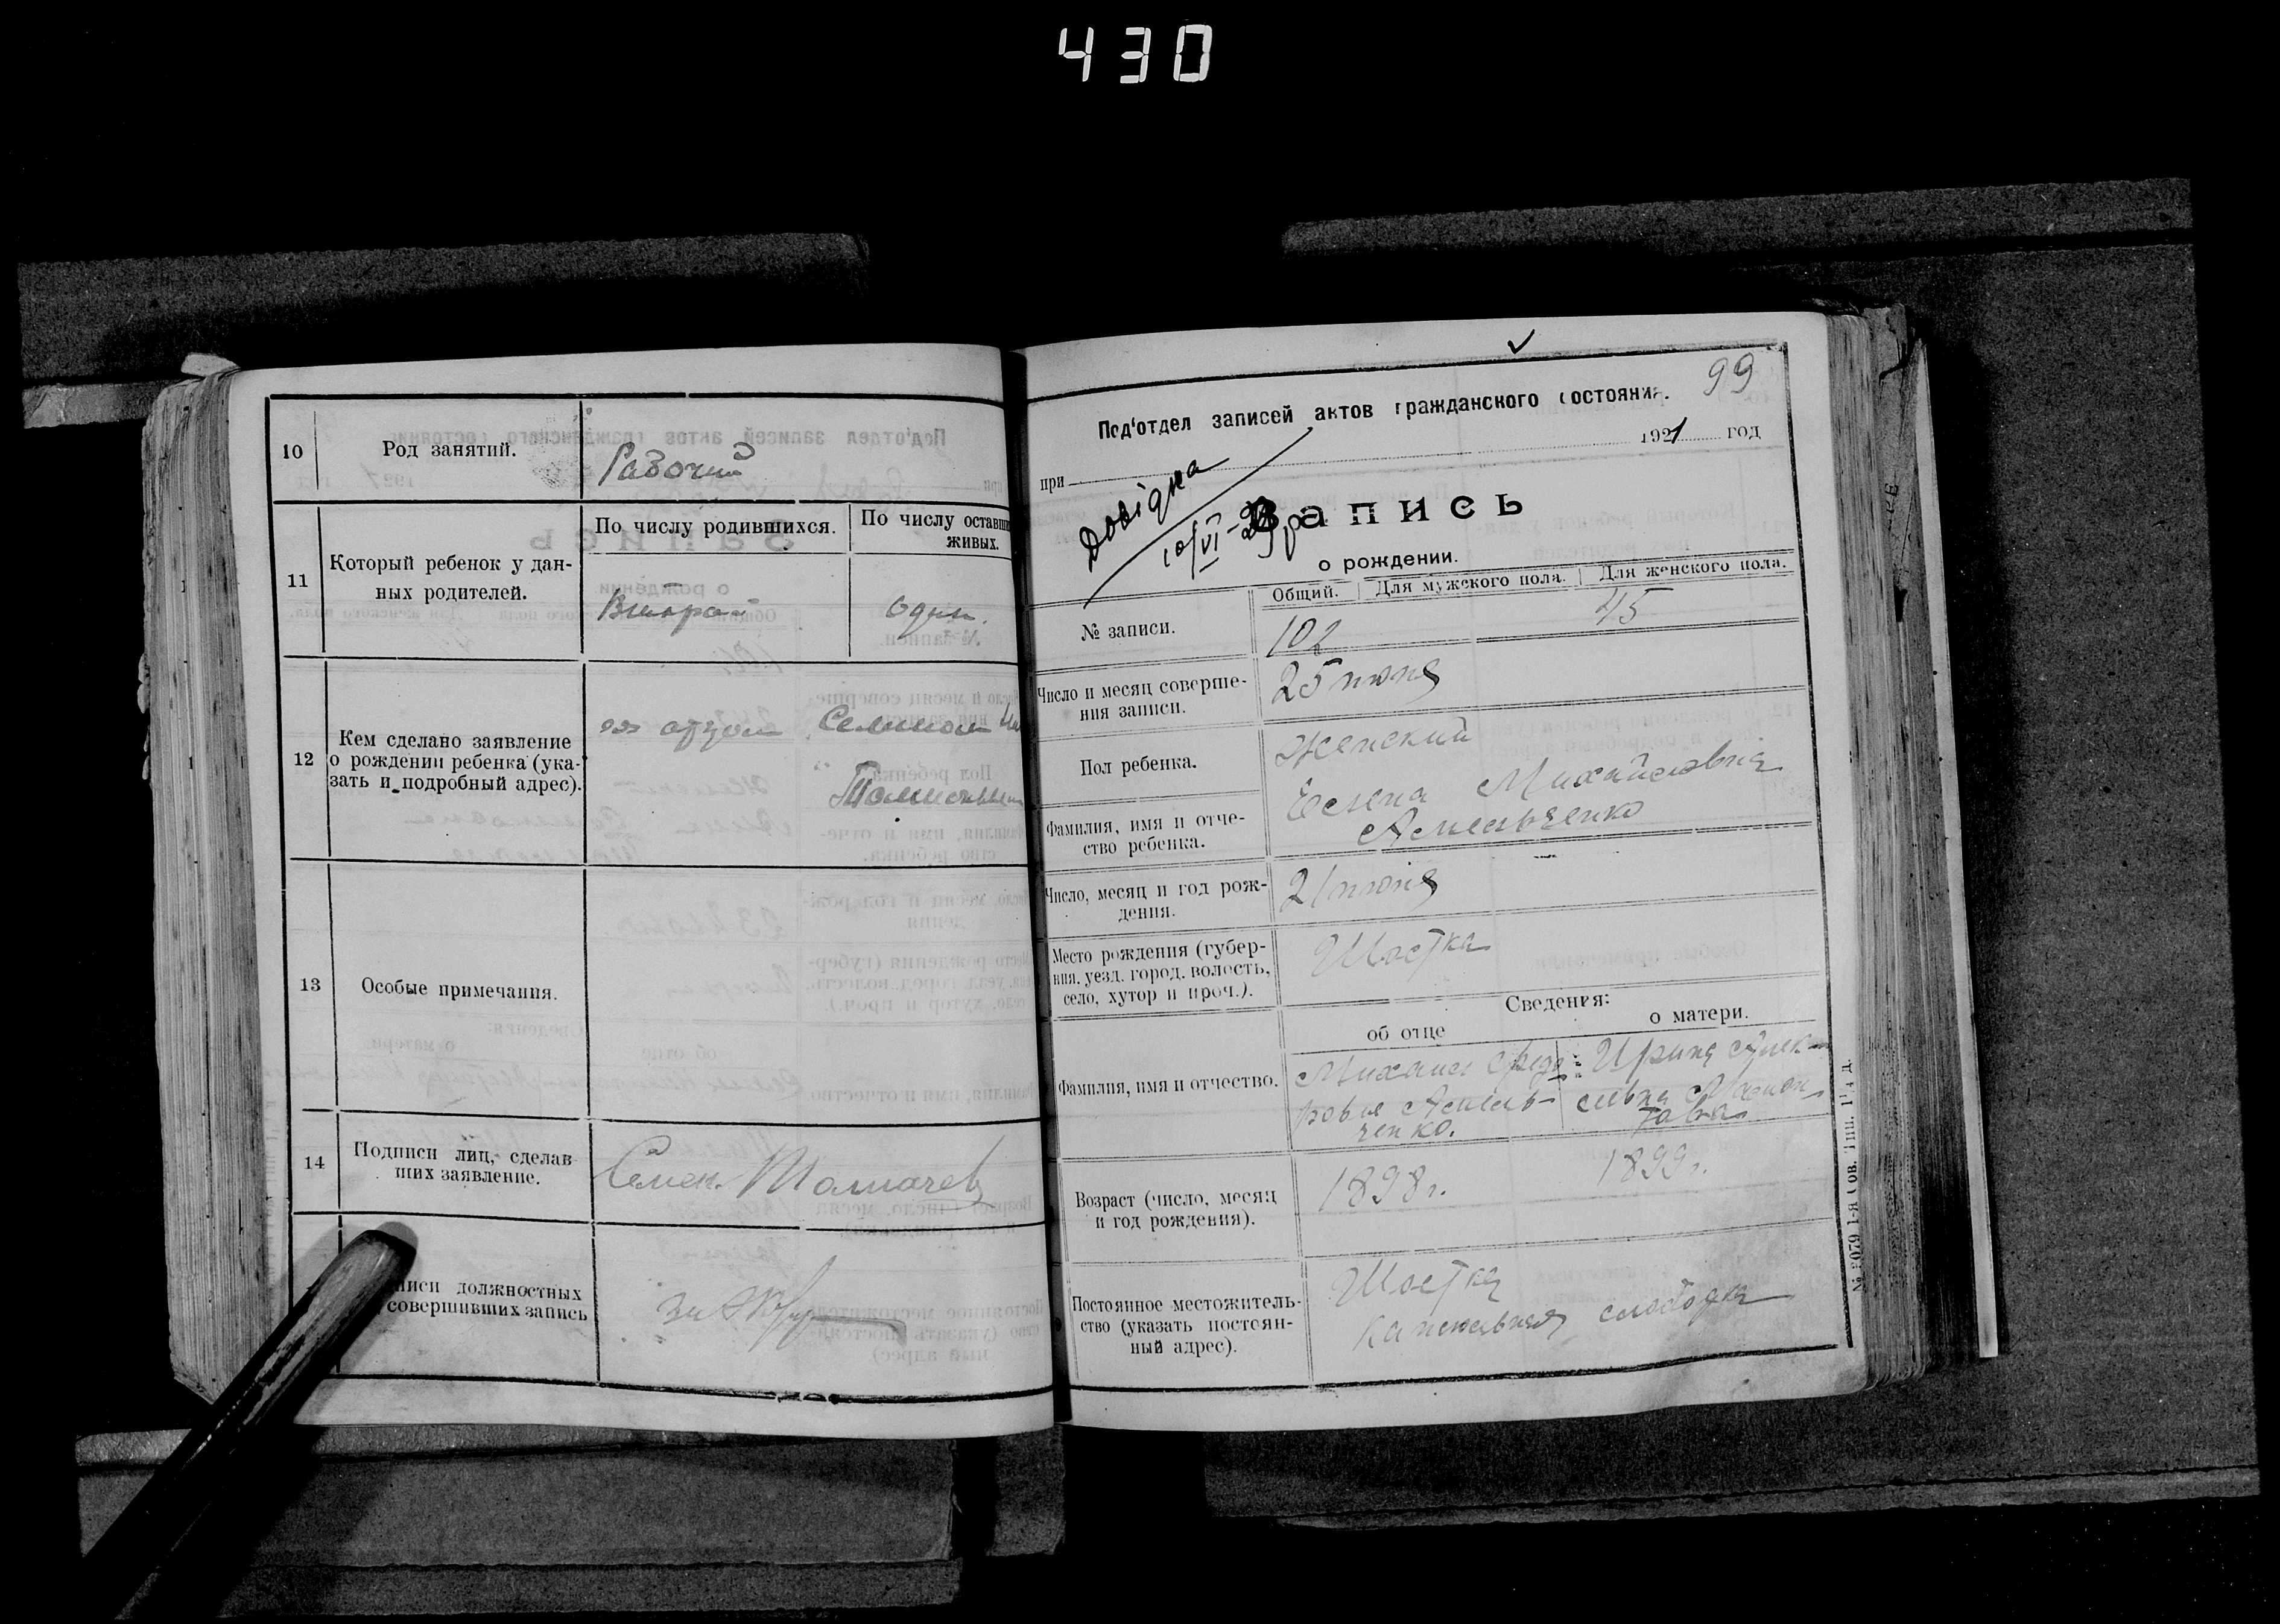 430
10
Род занятий.
Рабочий
11
Который ребенок у дан-
ных родителей.
По числу родившихся.
По числу оставши
живых.
Второй
один.
12
Кем сделано заявление
о рождении ребенка (ука-
зать и подробный адрес).
отцом Семеном
13
Особые примечания.
14
Подписи лиц, сделав
ших заявление.
Семен Толмачев
писи должностных
совершивших запись
99
Под'отдел записей актов гражданского состояния.
при
1921 год
Довідка
10/VI-
Запись
о рождении.
Общий.
Для мужского пола.
Для женского пола.
№ записи.
102
45
Число и месяц соверше-
ния записи.
25 июня
Пол ребенка.
Женский
Фамилия, имя и отче-
ство ребенка.
Елена Михайловна
Асмольченко
Число, месяц и год рож-
дения.
21 июня
Место рождения (губер-
ния, уезд, город, волость,
село, хутор и проч.).
Шостка
Сведения:
об отце
о матери.
Фамилия, имя и отчество.
Михаил
ченко.
Ирина Алек-
Возраст (число, месяц
и год рождения).
1898 г.
1899 г.
Постоянное местожитель-
ство (указать постоян-
ный адрес).
Шостка
слободка